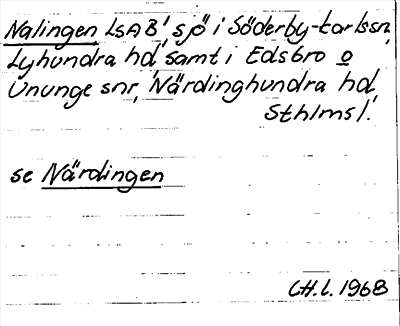 Nalingen LSAB, sjö i Söderby-karlssn,
Lyhundra hd, samt i Edsbro o
Ununge snr, Närdinghundra hd,
Sthlms l.
se Närdingen
C.H.L. 1968